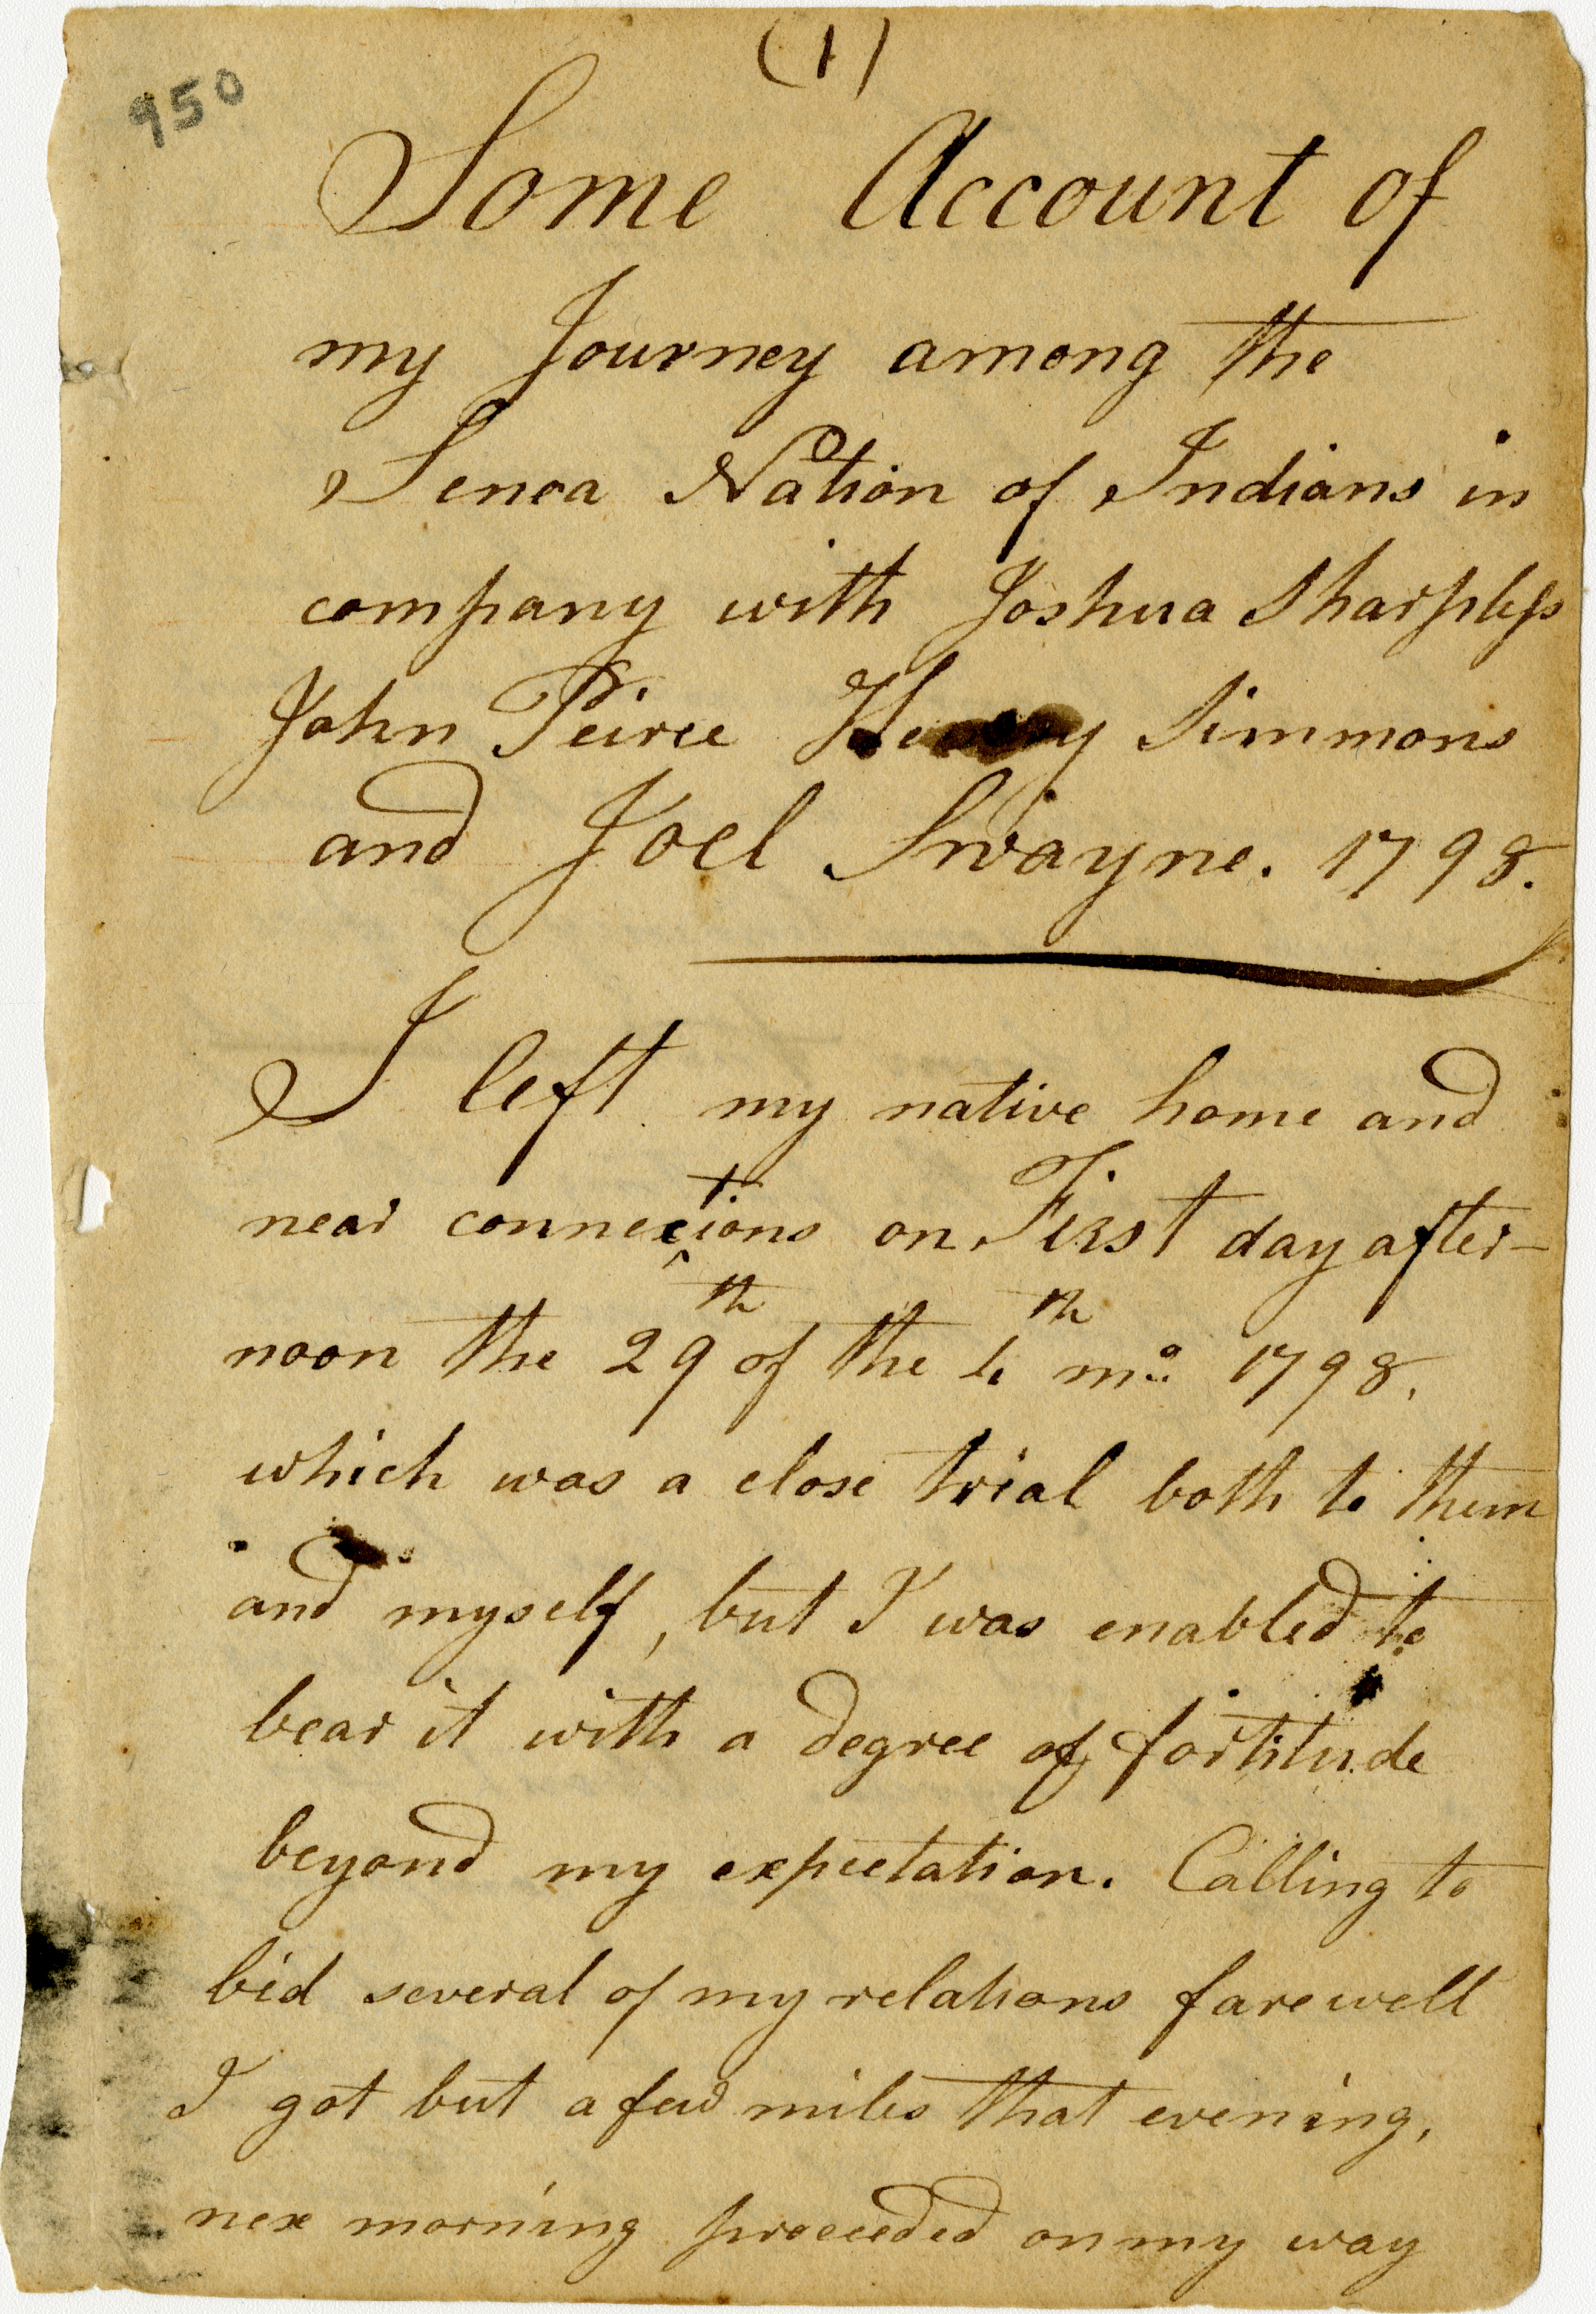 (1)
950
Some Account of
my Journey among the
Seneca Nation of Indians in
company with Joshua Sharpless
John Peirce Henry Simmons
and Joel Swayne. 1798.
I left my native home and
near connections on First day after-
noon the 29th of the 4th mo. 1798.
which was a close trial both to them
and myself, but I was enabled to
bear it with a degree of fortitude
beyond my expectation. Calling to
bid several of my relations farewell
I got but a few miles that evening,
nex morning proceeded on my way